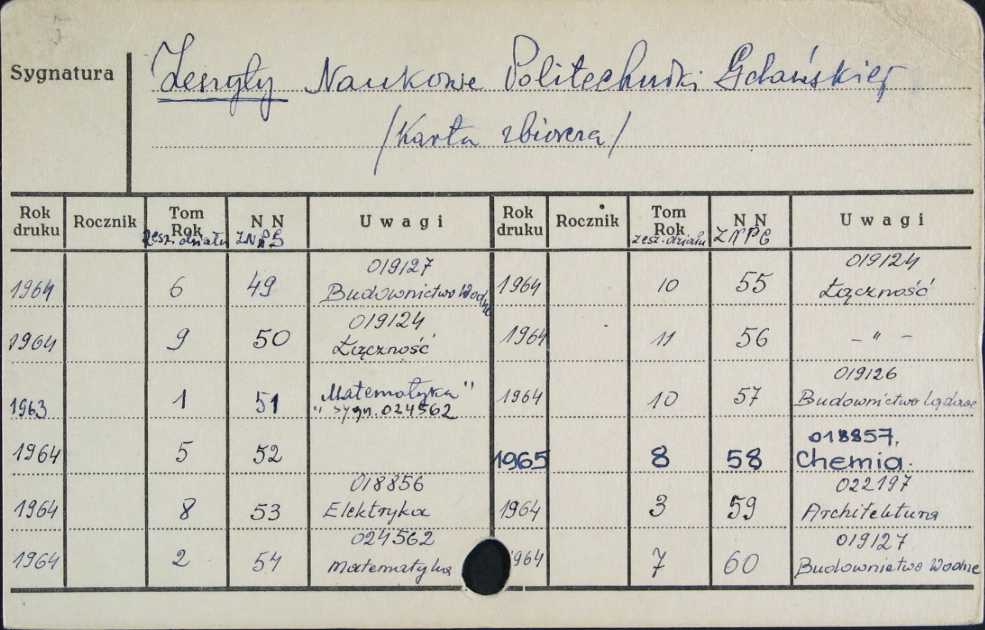 Sygnatura
Zeszyty Naukowe Politechniki Gdańskiej
/Karta zbiorcza/
Rok druku Rocznik Tom Rok zesz. działu NN ZNPG Uwagi Rok druku Rocznik Tom Rok zesz. działu NN ZNPG Uwagi
1964 6 49 019127 Budownictwo Wodne 1964 10 55 019124 Łączność
1964 9 50 019124 Łączność 1964 11 56 – " –
1963 1 51 "Matematyka" sygn. 024562 1964 10 57 019126 Budownictwo Lądowe
1964 5 52 1965 8 58 018857, Chemia.
1964 8 53 018856 Elektryka 1964 3 59 022197 Architektura
1964 2 54 024562 Matematyka 1964 7 60 019127 Budownictwo Wodne